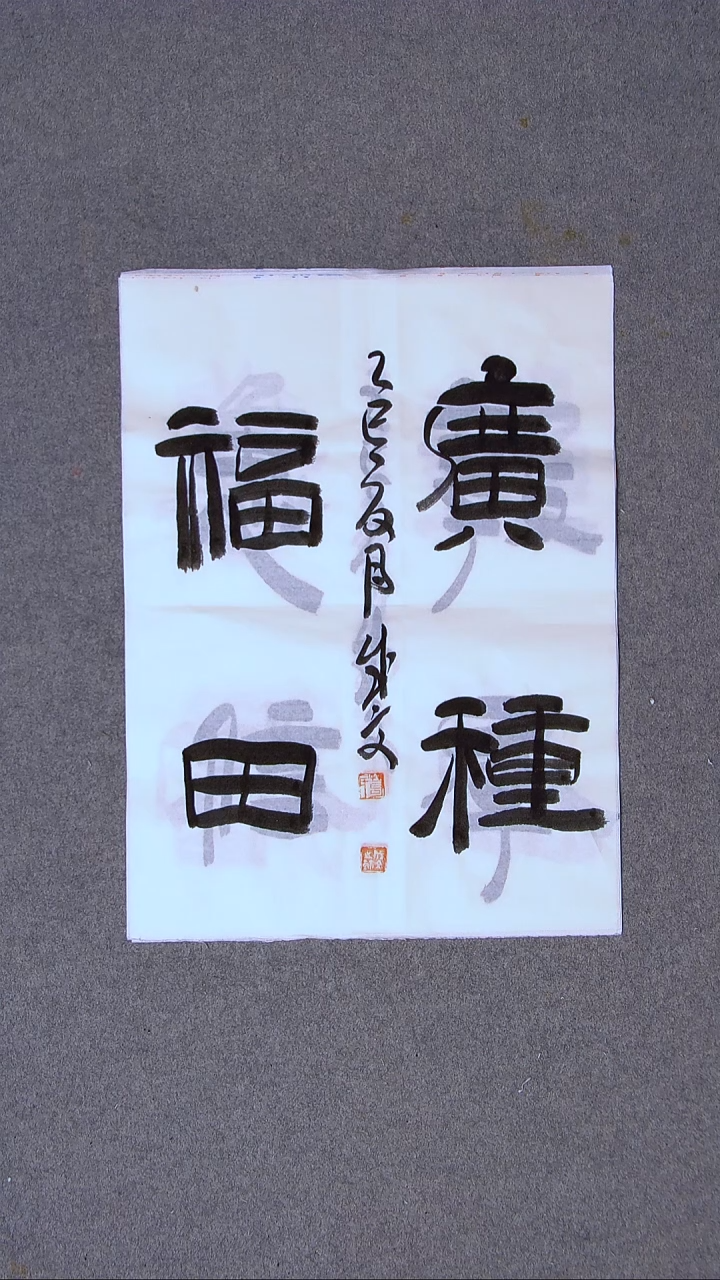 廣種
福田
乙巳夏月成文